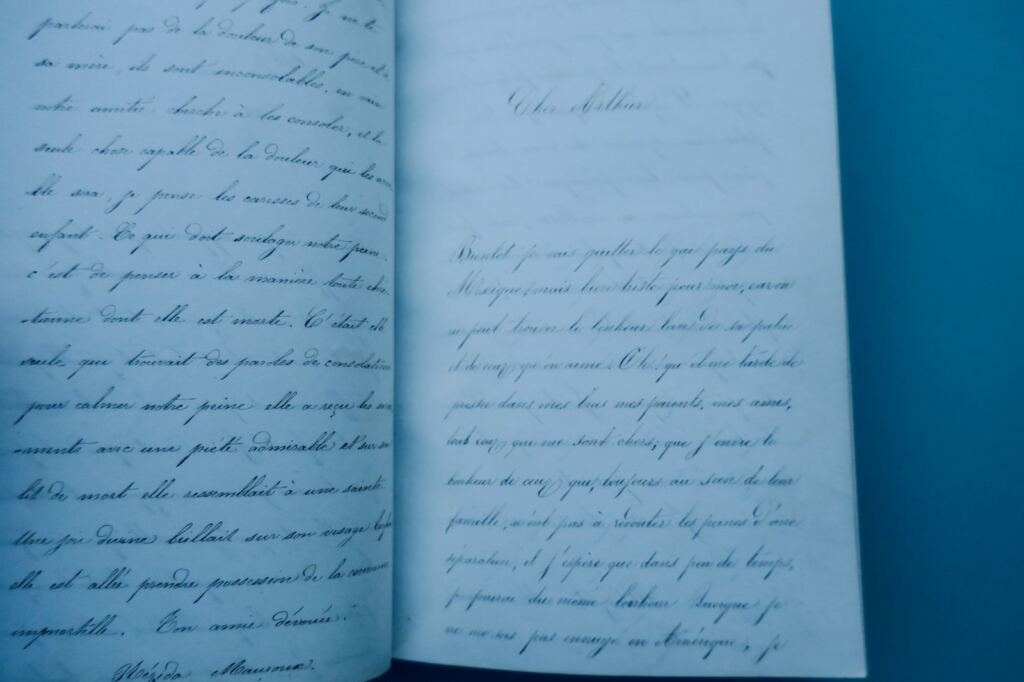 parlerai pas de la douleur de son père et de
sa mère, ils sont inconsolables, en vain
notre amitié cherche à les consoler, et la
seule chose capable de la douleur qui les acca-
ble sera, je pense les caresses de leur second
enfant. Ce qui doit soulager notre peine
c'est de penser à la manière toute chré-
-tienne dont elle est morte. C'était elle
seule qui trouvait des paroles de consolation
pour calmer notre peine elle a reçu les sacre
-ments avec une piété admirable et sur son
lit de mort elle ressemblait à une sainte
Une joie divine brillait sur son visage
elle est allée prendre possession de la couronne
immortelle. Ton amie dévouée.
Cher Arthur
Bientôt je vais quitter le gai pays du
Mexique, mais bien triste pour moi, car on
ne peut trouver le bonheur loin de sa patrie
et de ceux qu'on aime. Oh! qu'il me tarde de
presser dans mes bras mes parents, mes amis,
tout ceux que me sont chers; que j'envie le
bonheur de ceux qui, toujours au sein de leur
famille, n'ont pas à redouter les peines d'une
séparation, et j'espère que dans peu de temps,
je jouirai du même bonheur. Quoique je
ne me sois pas ennuyé en Amérique, je